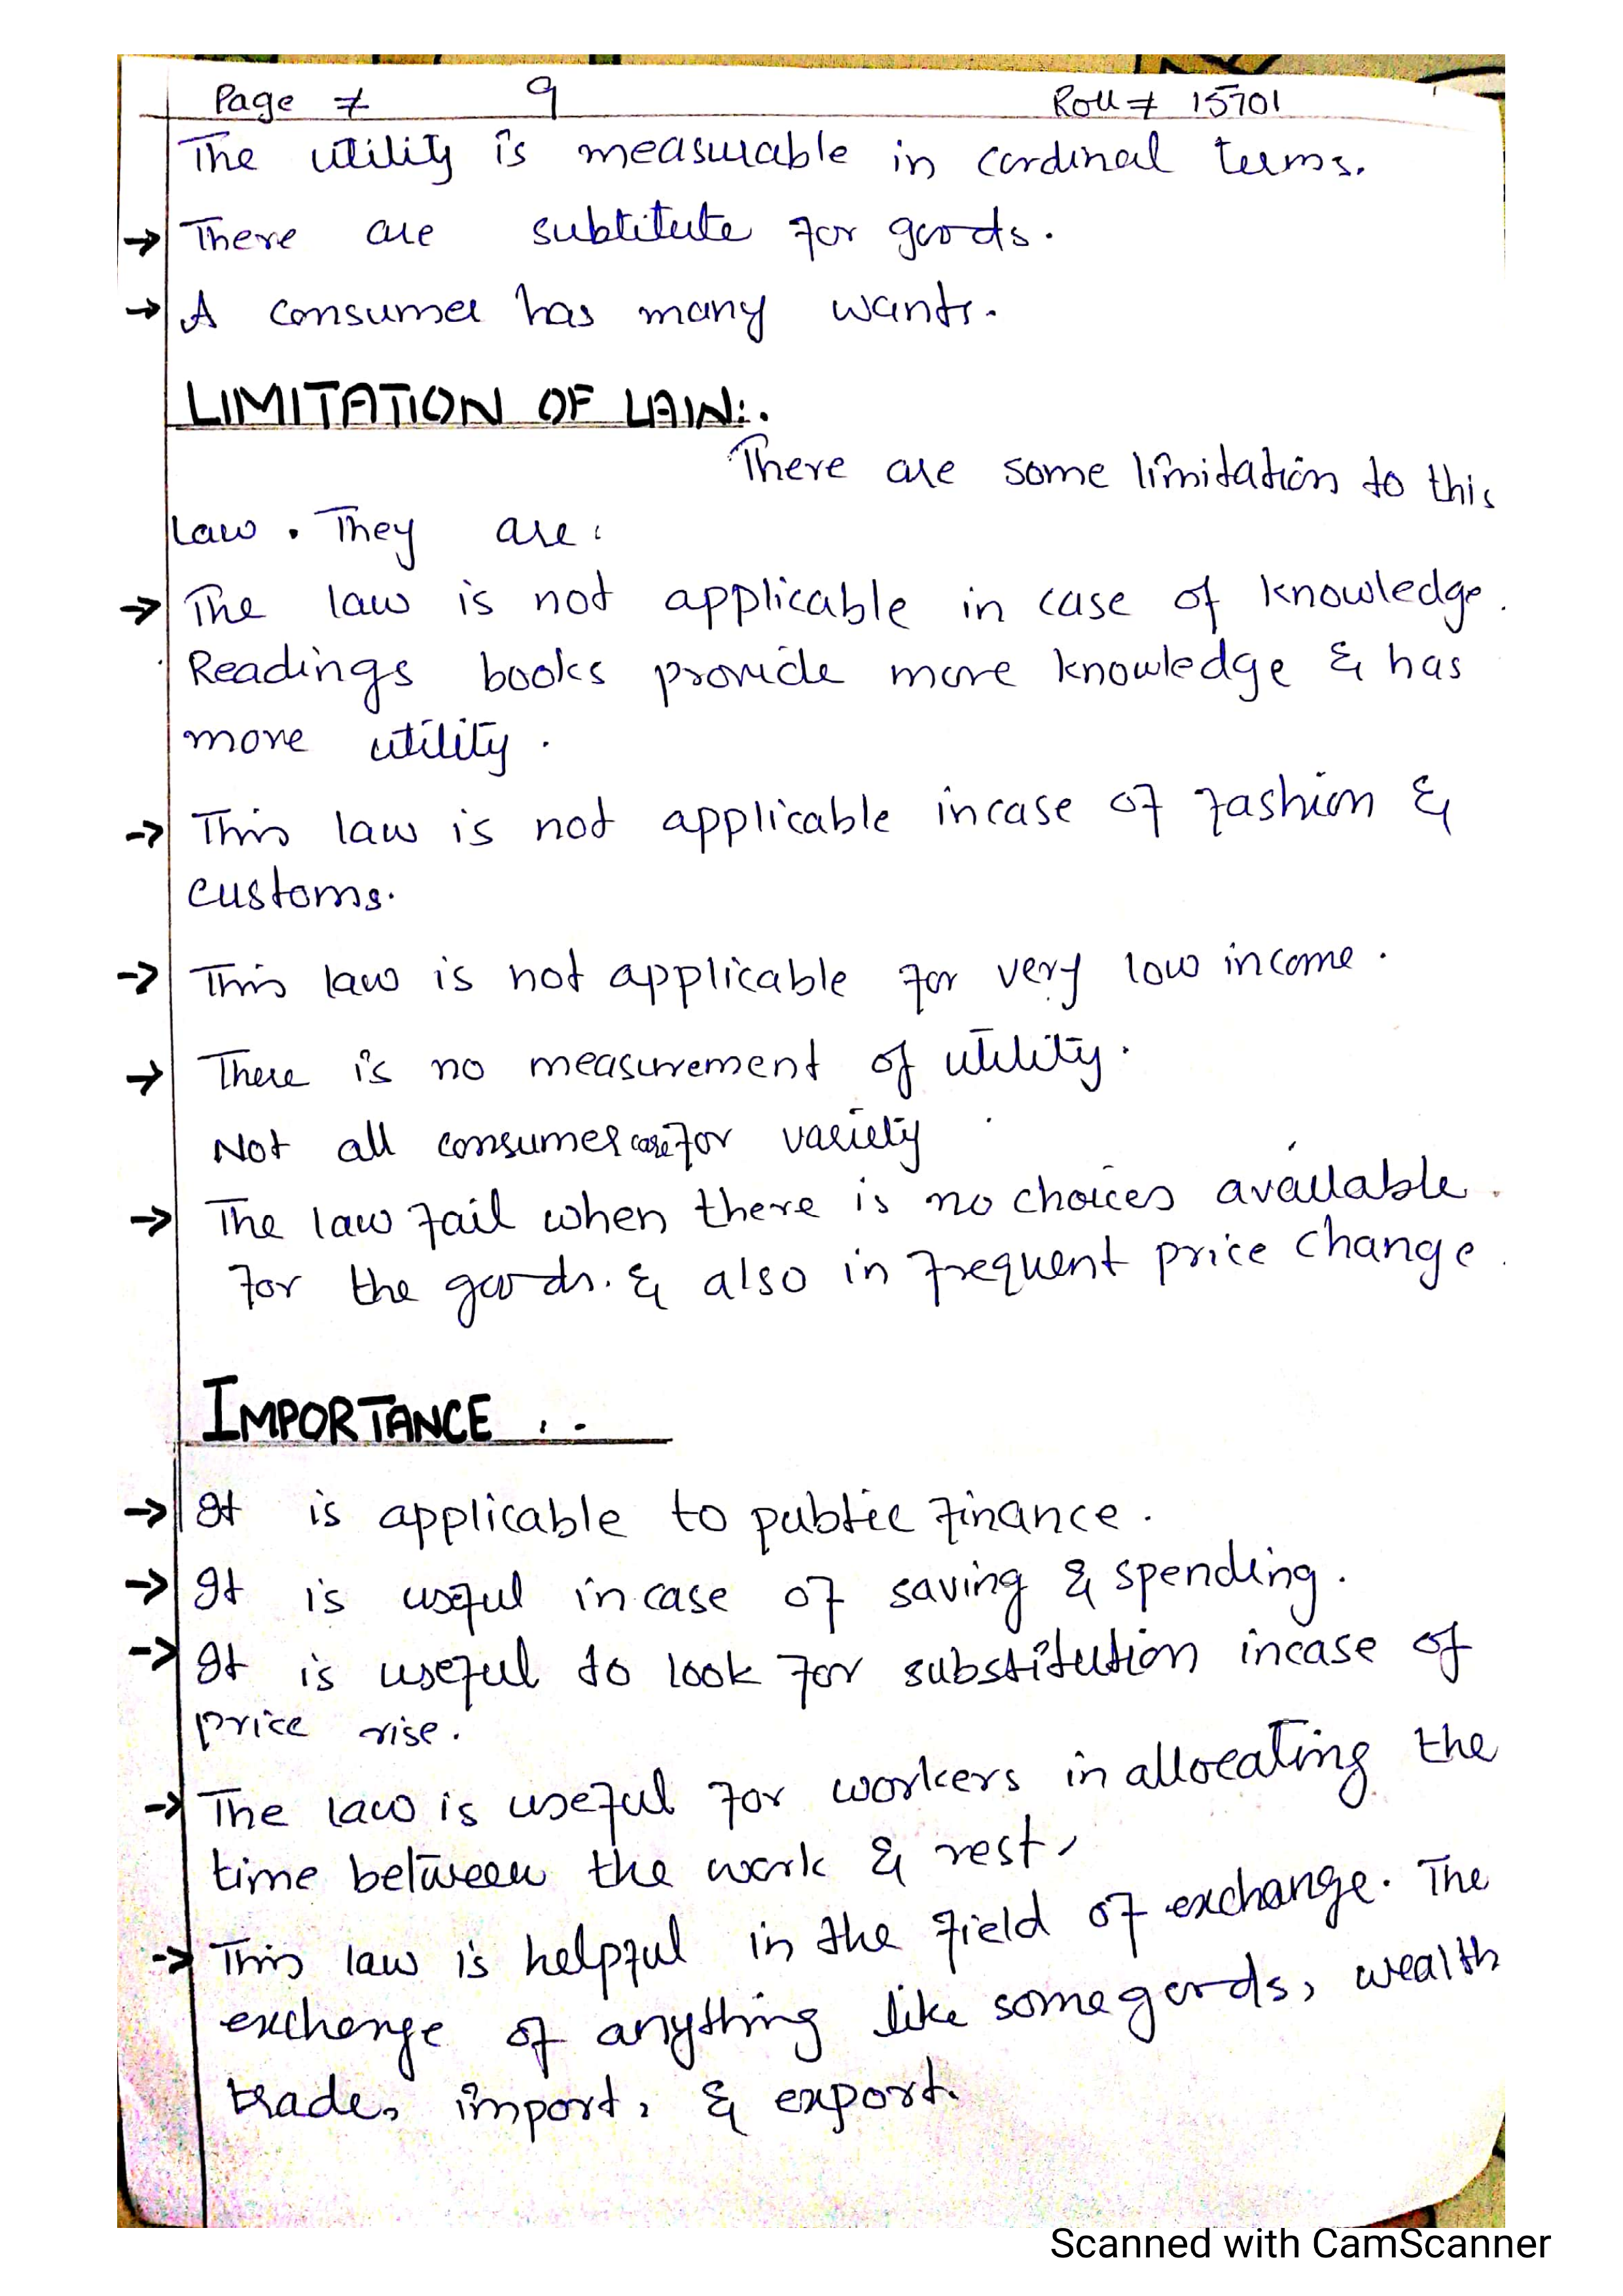 Page # 9 Roll # 15701
The utility is measurable in cardinal terms.
→ There are subtitute for goods.
→ A consumer has many wants.
LIMITATION OF LAW:.
There are some limitation to this
law. They are:
→ The law is not applicable in case of knowledge.
Readings books provide more knowledge & has
more utility.
→ This law is not applicable incase of fashion &
customs.
→ This law is not applicable for very low income.
→ There is no measurement of utility.
Not all consumer care for variety
→ The law fail when there is no choices available.
for the goods. & also in frequent price change.
IMPORTANCE :.
→ It is applicable to public finance.
→ It is useful incase of saving & spending.
→ It is useful to look for substitution incase of
price rise.
→ The law is useful for workers in allocating the
time between the work & rest,
→ This law is helpful in the field of exchange. The
exchange of anything like some goods, wealth
trade, import, & export.
Scanned with CamScanner